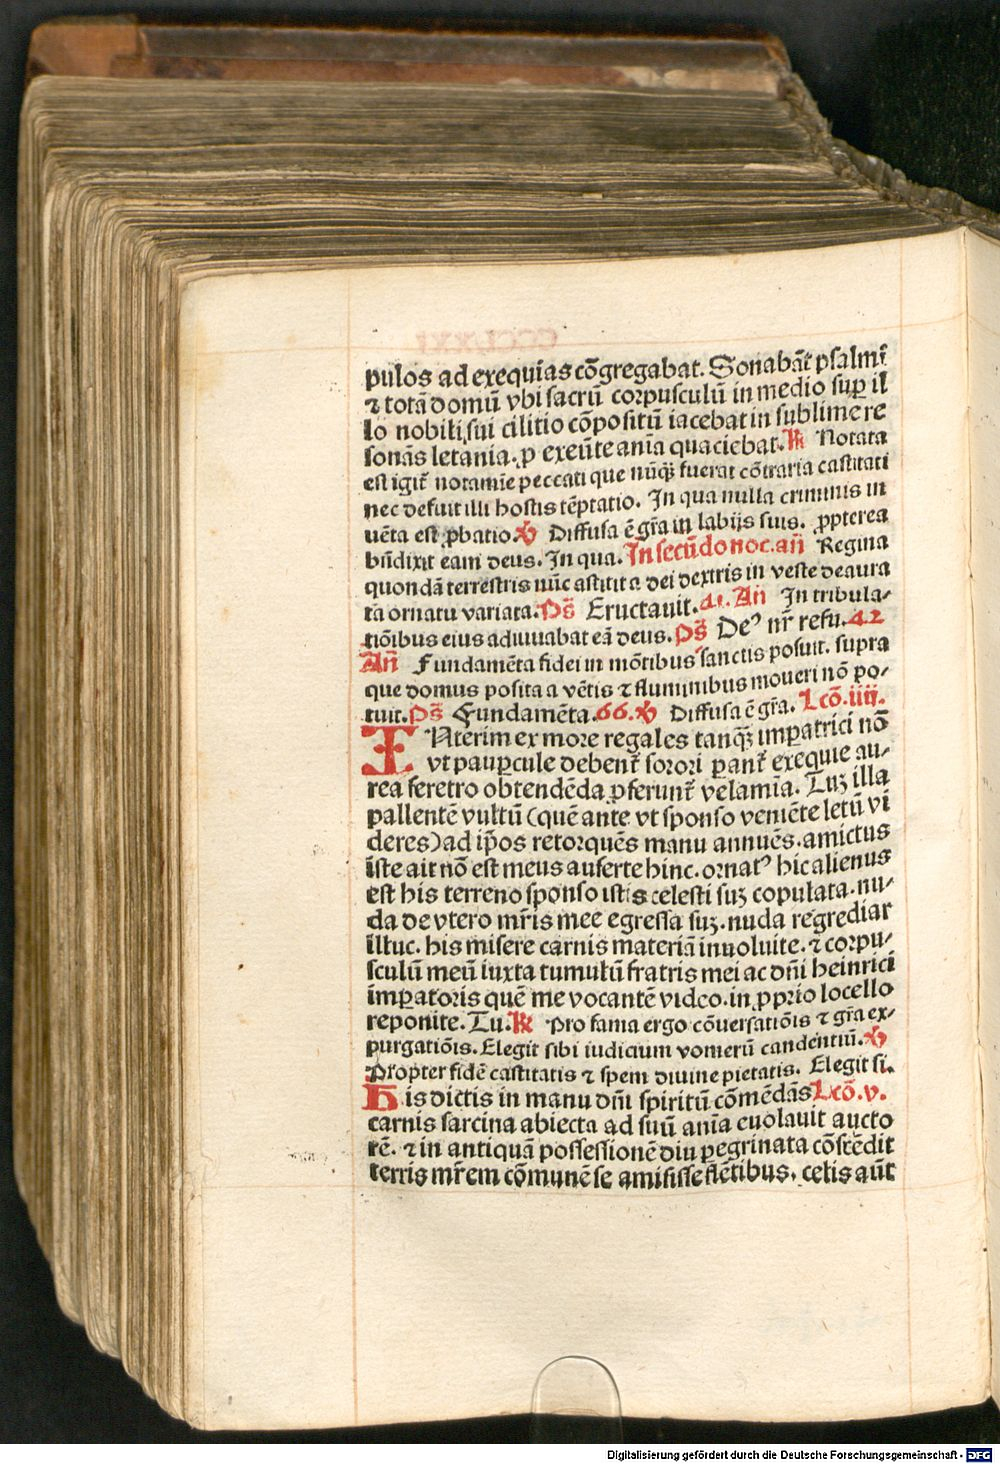 CCCLXXI
pulos ad exequias cōgregabat. Sonabāt psalmi
⁊ totā domū vbi sacrū corpusculū in medio sup il
lo nobili sui cilitio cōpositū iacebat in sublime re
sonās letania. ꝓ exeūte aīa quaciebat. ℟ Notata
est igit̄ notamīe peccati que nūꝗ̄ fuerat cōtraria castitati
nec defuit illi hostis tēptatio. In qua nulla criminis in
uēta est ꝓbatio. ℣ Diffusa ē gr̄a in labijs suis. ꝓpterea
bn̄dixit eam deus. In qua. In secūdo noc. añ Regina
quondā terrestris nūc astitit a dei dextris in veste deaura
ta ornatu variata. Pš Eructauit. 41. Añ In tribula⸗
tiōibus eius adiuuabat eā deus. Pš Deꝰ nr̄ refu. 42
Añ Fundamēta fidei in mōtibus sanctis posuit. supra
que domus posita a vētis ⁊ fluminibus moueri nō po⸗
tuit. Pš Fundamēta. 66. ℣ Diffusa ē gr̄a. Lcō. iiij.
INterim ex more regales tanꝗ̄ impatrici nō
vt paupercule debent̄ sorori parant̄ exequie au⸗
rea feretro obtendēda ꝓferunt̄ velamīa. Tuꝫ illa
pallentē vultū (quē ante vt sponso veniēte letū vi
deres) ad ip̄os retorquēs manu annuēs. amictus
iste ait nō est meus auferte hinc. ornatꝰ hic alienus
est his terreno sponso istis celesti suꝫ copulata. nu⸗
da de vtero mr̄is mee egressa suꝫ. nuda regrediar
illuc. his misere carnis materiā inuoluite. ⁊ corpu⸗
sculū meū iuxta tumulū fratris mei ac dn̄i heinrici
imperatoris quē me vocantē video. in ꝓprio locello
reponite. Tu. ℟ Pro fama ergo cōuersatiōis ⁊ gr̄a ex⸗
purgatiōis. Elegit sibi iudicium vomerū candentiū. ℣
Propter fidē castitatis ⁊ spem diuine pietatis. Elegit si.
His dictis in manu dn̄i spiritū cōmēdās Lcō. v.
carnis sarcina abiecta ad suū aīa euolauit aucto
rē. ⁊ in antiquā possessionē diu peregrinata cōscēdit
terris mr̄em cōmunē se amisisse flētibus. celis aūt
Digitalisierung gefördert durch die Deutsche Forschungsgemeinschaft - DFG